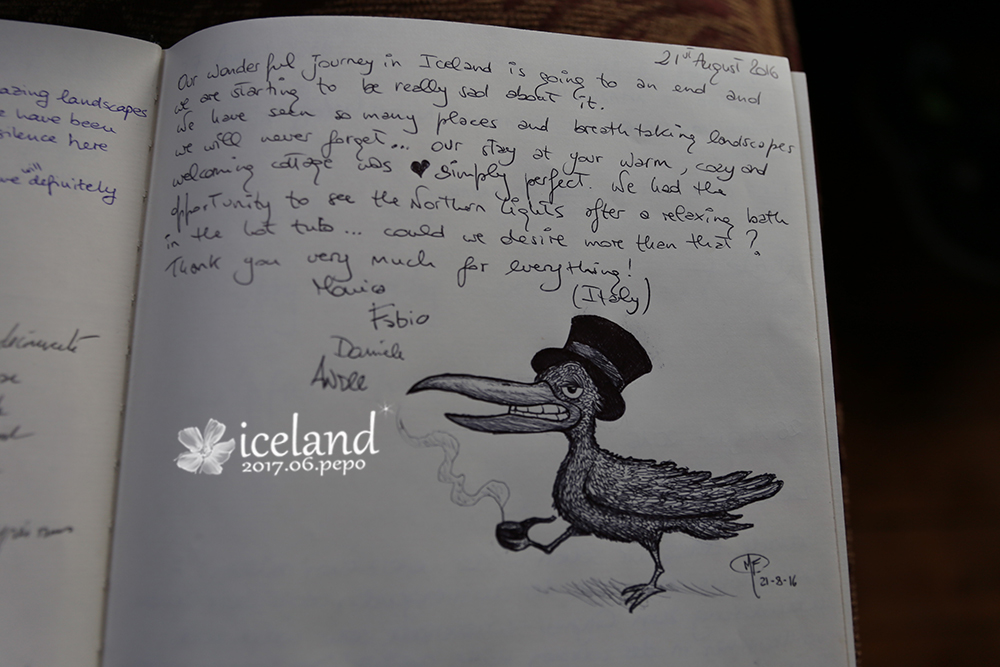 azing landscapes
have been
silence here
will
definitely
21st August 2016
Our wonderful journey in Iceland is going to an end and
we are starting to be really sad about it.
We have seen so many places and breathtaking landscapes
we will never forget... our stay at your warm, cozy and
welcoming cottage was ♥ simply perfect. We had the
opportunity to see the Northern Lights after a relaxing bath
in the hot tub... could we desire more then that?
Thank you very much for everything!
(Italy)
Monica
Fabio
Daniele
iceland
2017.06.pepo
MF
21-8-16